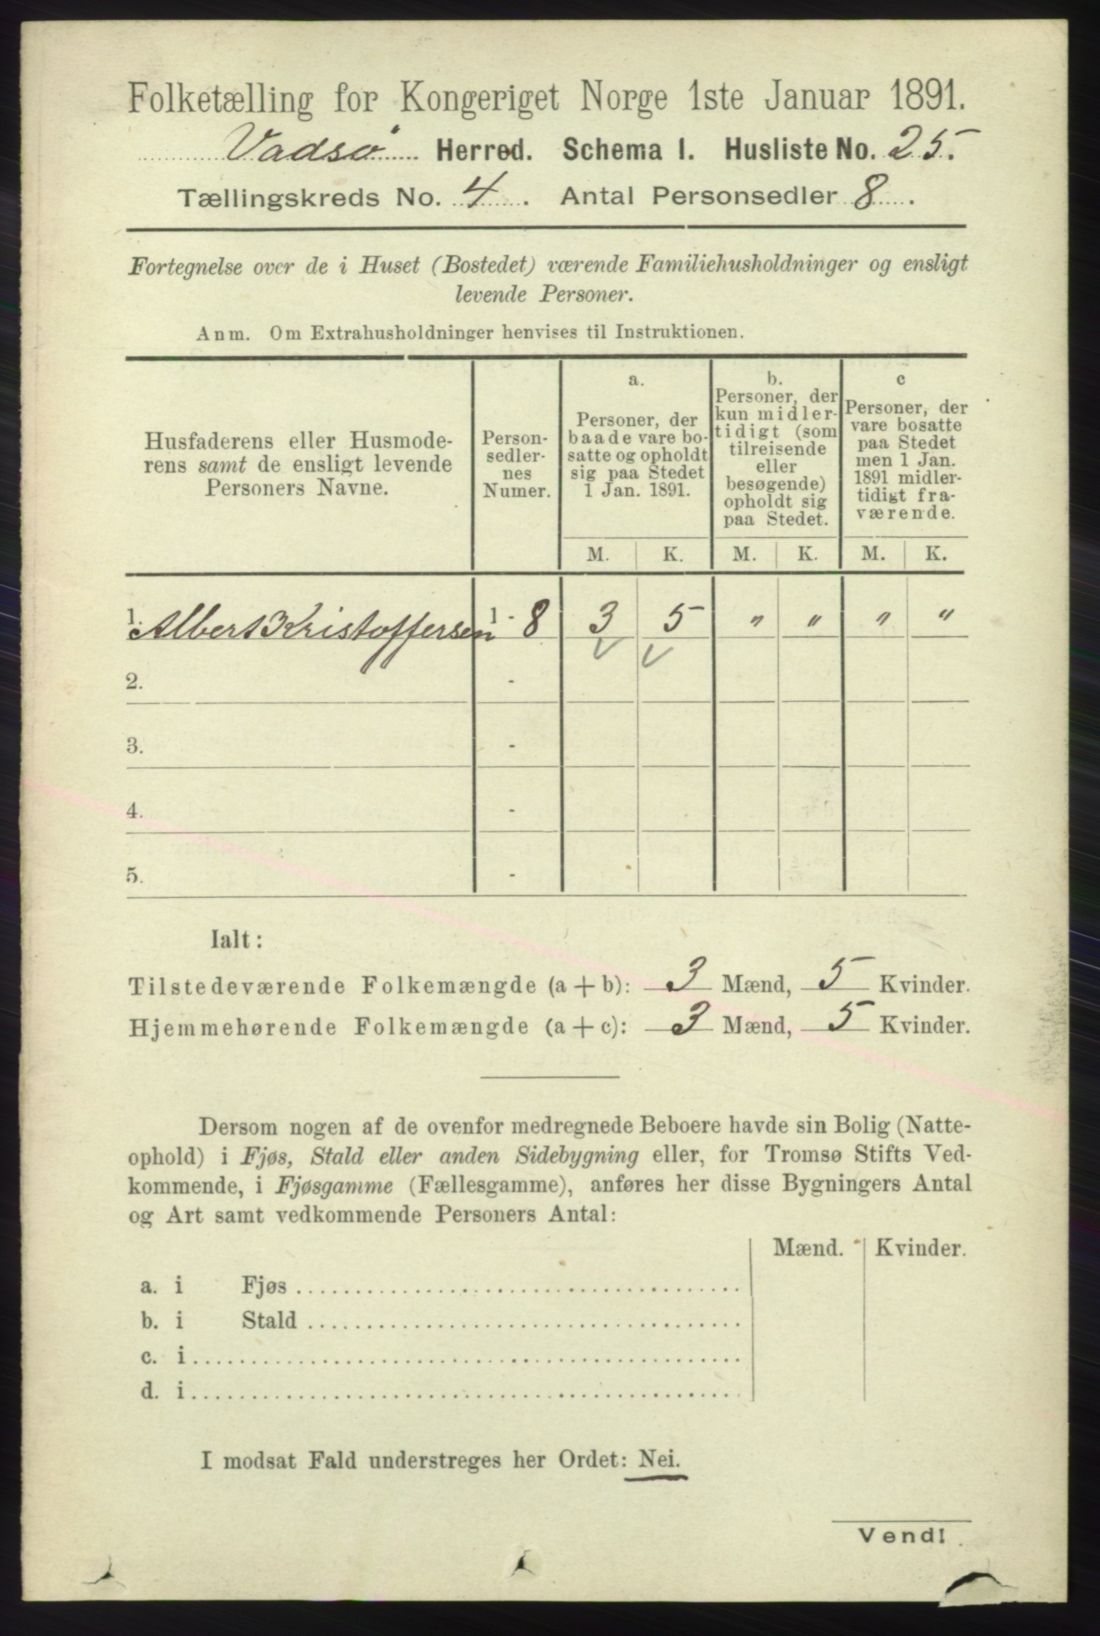 Folketælling for Kongeriget Norge 1ste Januar 1891.
Vadsø Herred. Schema I. Husliste No. 25.
Tællingskreds No. 4. Antal Personsedler 8.
Fortegnelse over de i Huset (Bostedet) værende Familiehusholdninger og ensligt
levende Personer.
Anm. Om Extrahusholdninger henvises til Instruktionen.
Husfaderens eller Husmode-
rens samt de ensligt levende
Personers Navne.
Person-
sedler-
nes
Numer.
a.
Personer, der
baade vare bo-
satte og opholdt
sig paa Stedet
1 Jan. 1891.
b.
Personer, der
kun midler-
tidigt (som
tilreisende
eller
besøgende)
opholdt sig
paa Stedet.
c
Personer, der
vare bosatte
paa Stedet
men 1 Jan.
1891 midler-
tidigt fra-
værende.
M. K. M. K. M. K.
1. Albert Kristoffersen 1 - 8 3 5 " " " "
2. -
3. -
4. -
5. -
Ialt:
Tilstedeværende Folkemængde (a + b): 3 Mænd, 5 Kvinder.
Hjemmehørende Folkemængde (a + c): 3 Mænd, 5 Kvinder.
Dersom nogen af de ovenfor medregnede Beboere havde sin Bolig (Natte-
ophold) i Fjøs, Stald eller anden Sidebygning eller, for Tromsø Stifts Ved-
kommende, i Fjøsgamme (Fællesgamme), anføres her disse Bygningers Antal
og Art samt vedkommende Personers Antal:
Mænd. Kvinder.
a. i Fjøs
b. i Stald
c. i
d. i
I modsat Fald understreges her Ordet: Nei.
Vend!